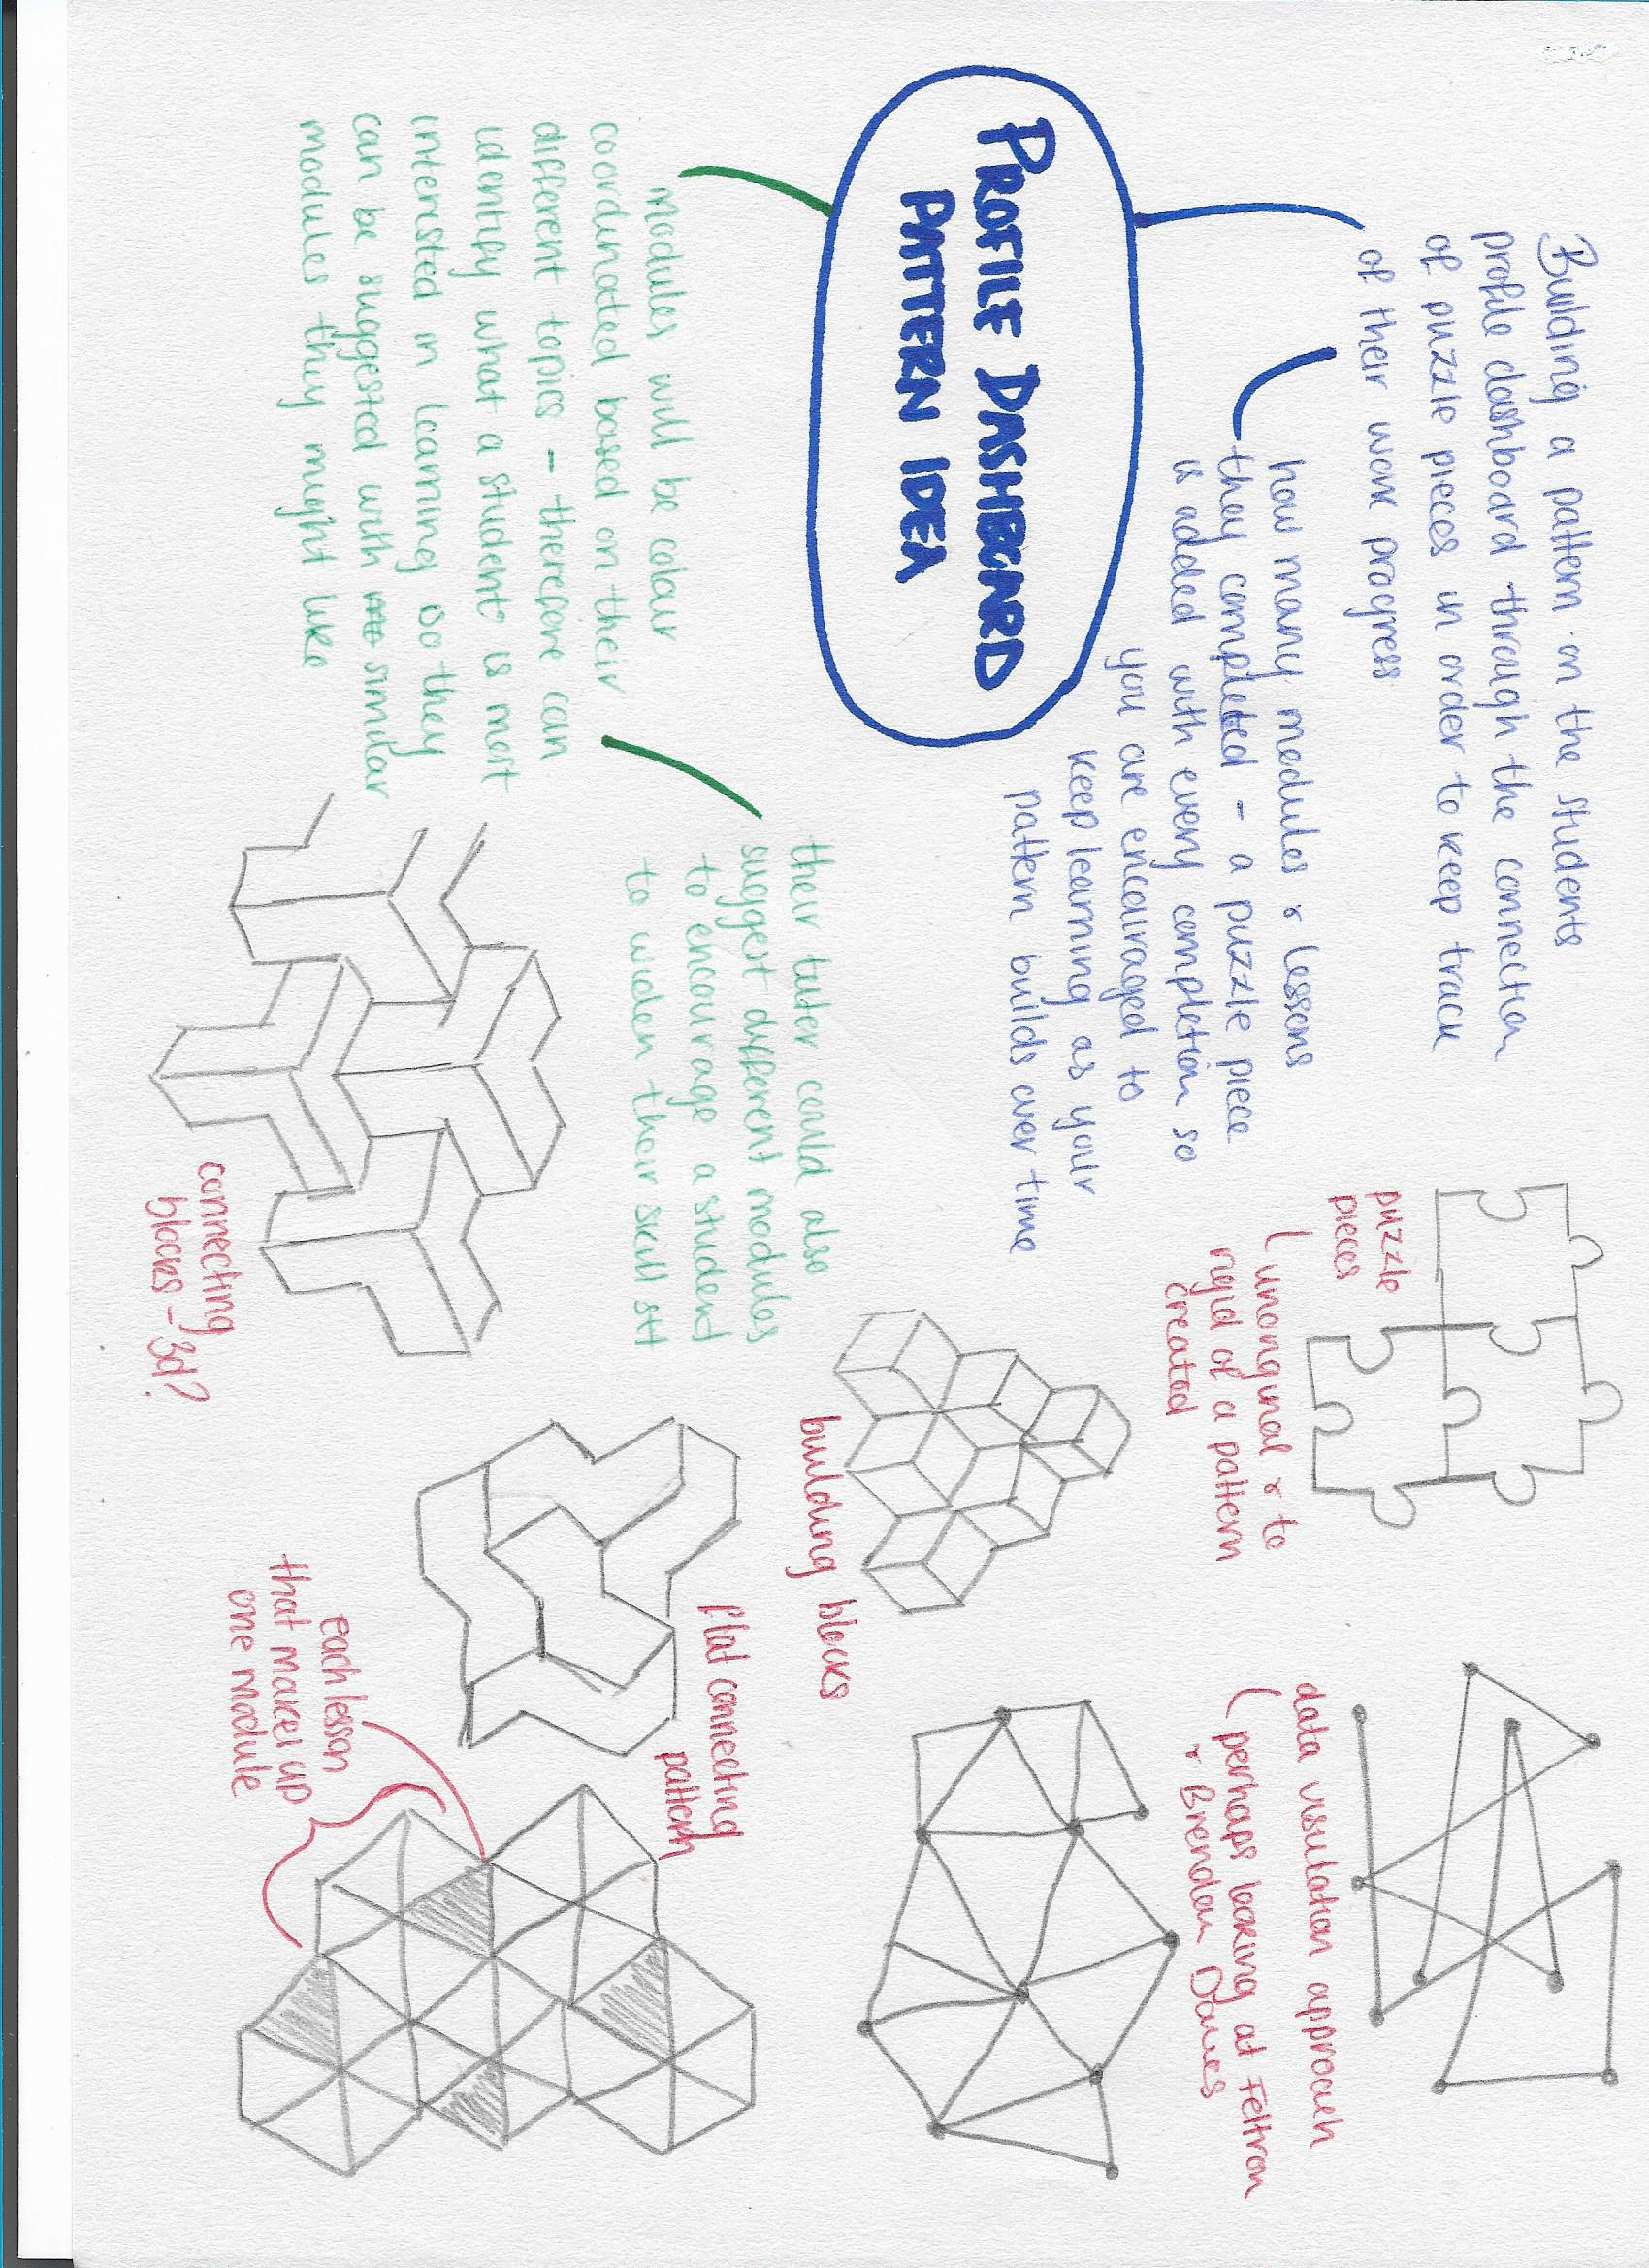 PROFILE DASHBOARD
PATTERN IDEA
Building a pattern on the students
profile dashboard through the connection
of puzzle pieces in order to keep track
of their work progress
how many modules & lessons
they completed - a puzzle piece
is added with every completion so
you are encouraged to
keep learning as your
pattern builds over time
modules will be colour
coordinated based on their
different topics - therefore can
identify what a student is most
interested in learning so they
can be suggested with similar
modules they might like
their tutor could also
suggest different modules
to encourage a student
to widen their skill set
puzzle
pieces
unoriginal & to
rigid of a pattern
created
data visulation approach
perhaps looking at Feltron
& Brendan Dawes
building blocks
connecting
blocks - 3d?
flat connecting
pattern
each lesson
that makes up
one module